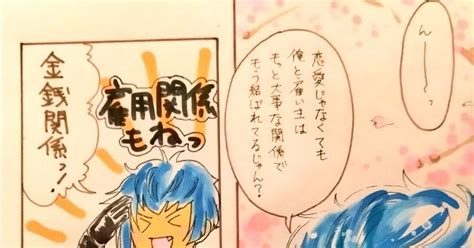 んーーっ
恋愛じゃなくても
俺と雇い主は
もっと大事な関係で
もう結ばれてるじゃん？
金銭関係っ！
雇用関係
もねっ